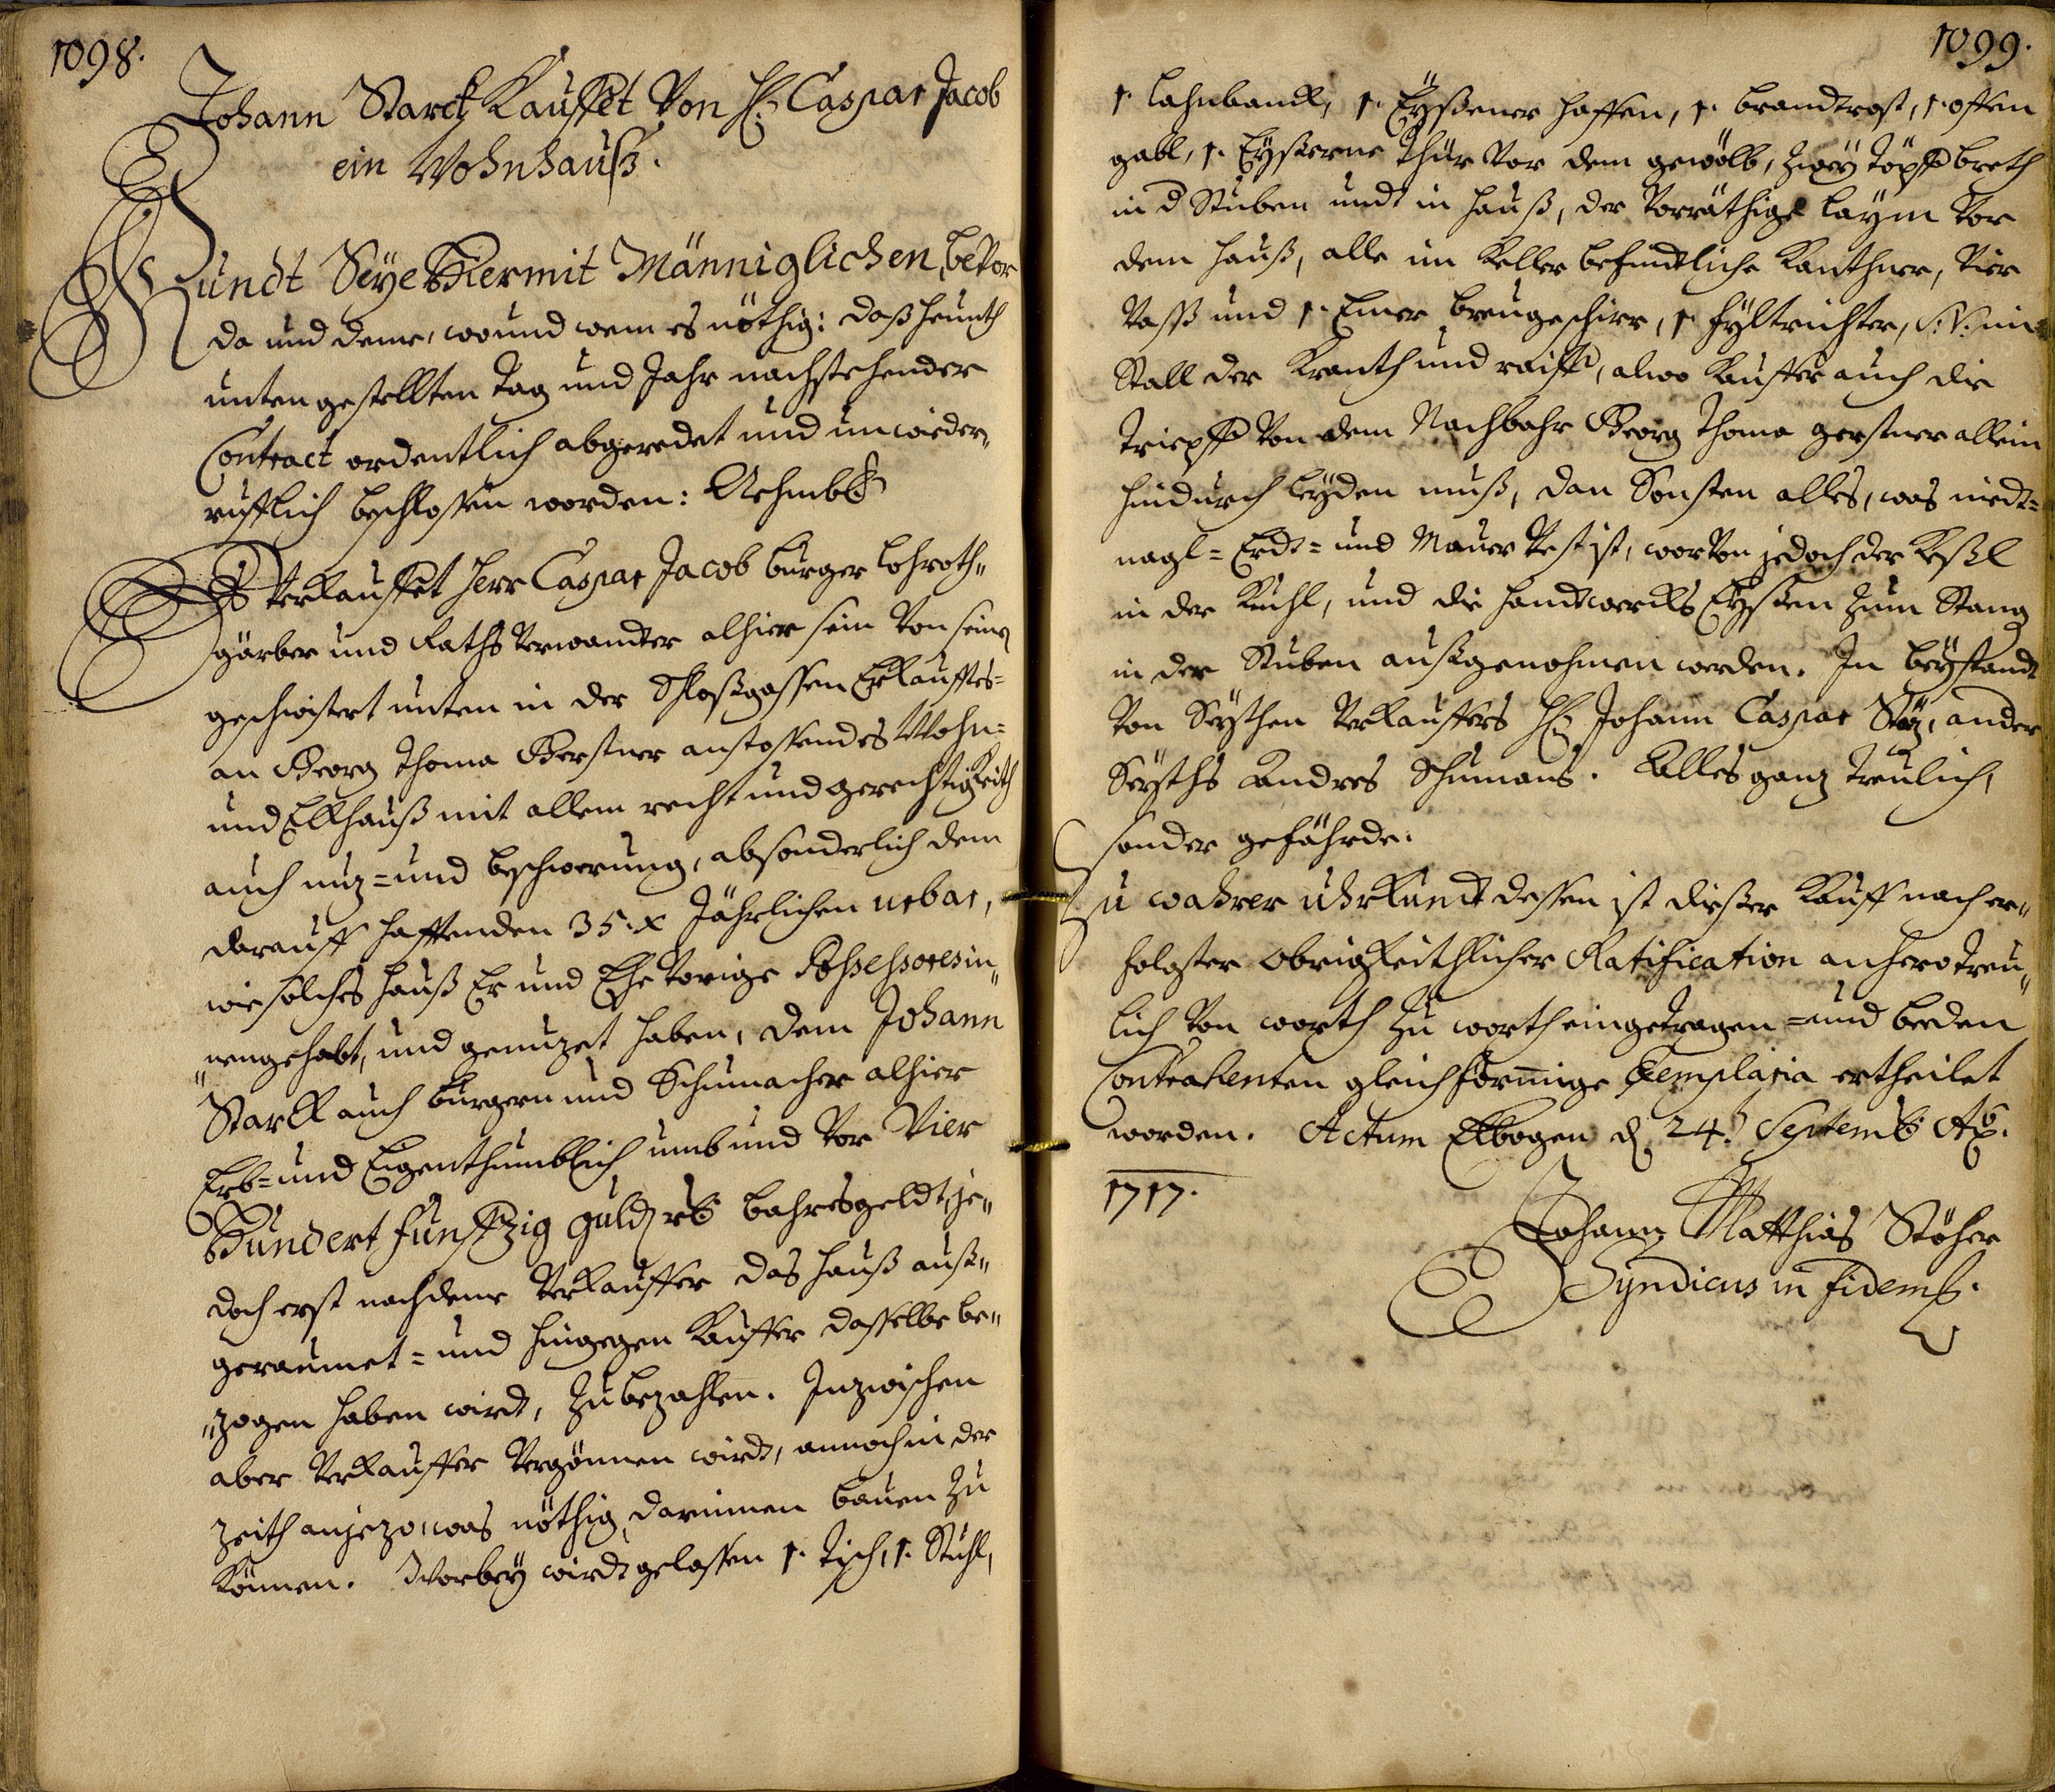 1098.
Johann Starck Kauffet Von H: Caspar Jacob
ein Wohnhauß.
Kundt Seye Hiermit Männiglichen, bevor
da und deme, wo und wem es nöthig: daß heünth
unten gestellten Tag und Jahr nachstehender
Contract ordentlich abgeredet und unwieder„
rufflich beschlossen worden: Nehmbl:
Es Verkauffet Herr Caspar Jacob burger Lohroth„
gärber und Raths Verwandter alhier sein Von seinen
geschwistert unten in der Schloßgassen Erkaufftes=
an Georg Thoma Gerstner anstossendes Wohn=
und Eckhauß mit allem recht und gerechtigkeith
auch nuz= und beschwerung, absonderlich dem
darauff hafftenden 35. x Jährlichen urbar,
wie solches hauß Er und Ehe Vorige Possessores in„
„nengehabt, und genuzet haben, dem Johann
Starck auch burgern und Schumacher alhier
Erb= und Eigenthumblich umb und Vor Vier
Hundert Funffzig guld rh bahres geldt, je„
doch erst nachdeme Verkauffer das hauß auß„
geraumet= und hingegen Kauffer dasselbe be„
„zogen haben wirdt, zu bezahlen. Inzwischen
aber Verkauffer Vergönnen wirdt, annoch in der
zeith anjezo, was nöthig, darinnen bauen zu
können. Worbey wirdt gelassen 1. Tisch, 1. Stuhl,
1099.
1. Lahnbanck, 1. Eyßener haffen, 1. brandtrost, 1. offen
gabl, 1. Eyßerne Thür Vor dem gewölb, zwey Töpff breth
in d Stuben undt in hauß, der Vorräthige laym Vor
dem hauß, alle im Keller befindtliche Kanthner, Vier
Vass und 1. Emer breugeschirr, 1. Fyltrichter, S: V: im
Stall der Kranth und raiff, alwo Kauffer auch die
Triepff Von dem Nachbahr Georg Thoma gerstner allein
hindurch leyden muß, dan Sonsten alles, was niedt=
nagl= Erdt= und Mauer Vest ist, worVon jedoch der Keßl
in der Kuchl, und die handtwercks Eyßen zum Stang
in der Stuben außgenohmen werden. In beystandt
Von Seythen Verkauffers H: Johann Caspar Stöz, ander
Seyths Andres Schumans. Alles ganz treulich,
sonder gefährde.
Zu wahrer uhrkundt dessen ist dießer Kauff nach er„
folgter obrigkeithlicher Ratification anhero treu„
lich Von worth zu worth eingetragen= und beeden
Contrahenten gleichförmige Exemplaria ertheilet
worden. Actum Elbogen d 24. Septemb Ao.
1717.
Johann Matthias Stöher
Syndicus in fidem.